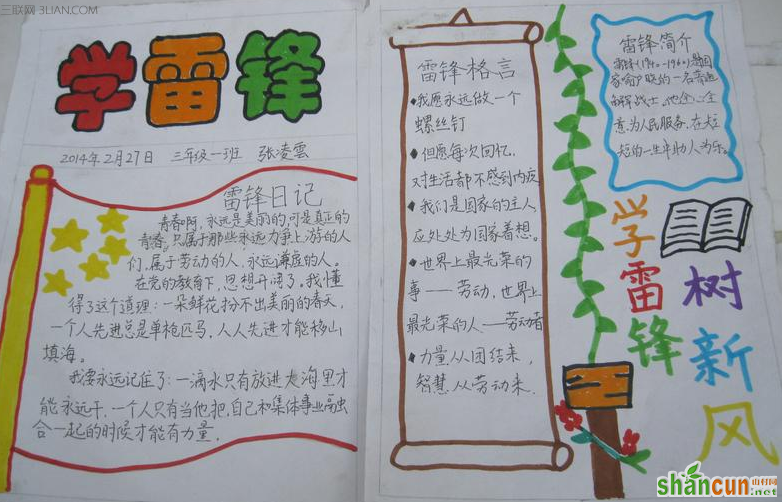 三联网 3LIAN.COM
学雷锋
2014年2月27日 三年级一班 张凌雲
雷锋日记
青春啊,永远是美丽的,可是真正的
青春,只属于那些永远力争上游的人
们,属于劳动的人,永远谦虚的人。
在党的教育下,思想开阔了。我懂
得了这个道理:一朵鲜花扮不出美丽的春天,
一个人先进总是单枪匹马,人人先进才能移山
填海。
我要永远记住了:一滴水只有放进大海里才
能永远干,一个人只有当他把自己和集体事业融
合一起的时候才能有力量。
雷锋格言
我愿永远做一个
螺丝钉
但愿每次回忆,
对生活都不感到内疚
我们是国家的主人,
应处处为国家着想。
世界上最光荣的
事——劳动,世界上
最光荣的人——劳动者
力量从团结来,
智慧从劳动来.
雷锋简介
雷锋(1940-1962)是
的一名普通
解放战士,他全心全
意为人民服务,在短
短的一生中助人为乐。
学雷锋
树新风
shancun
.net